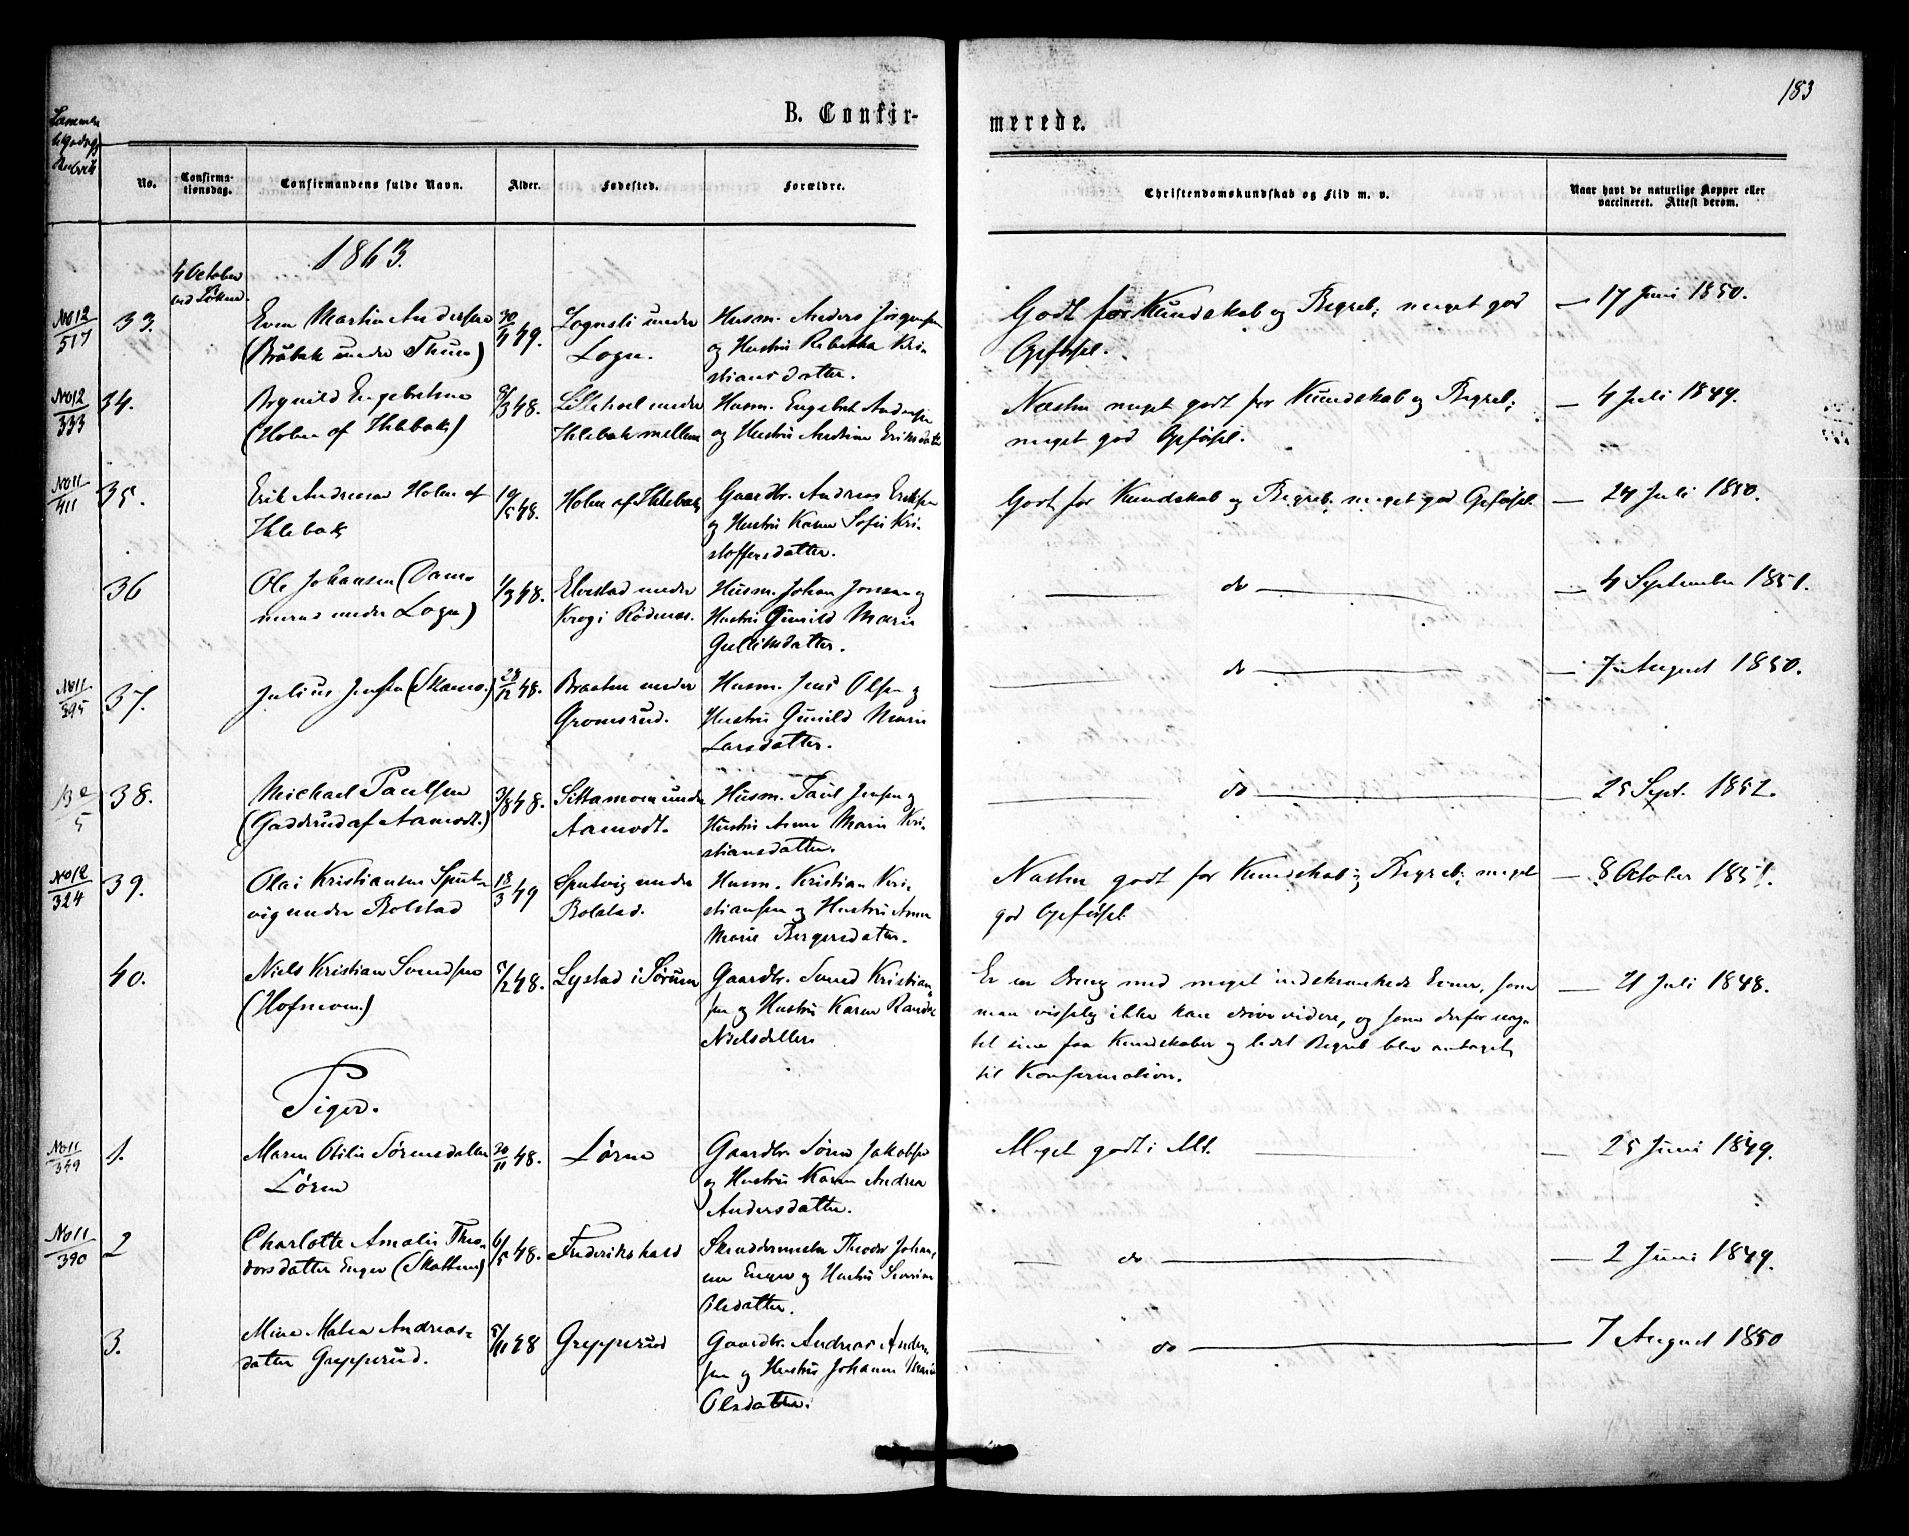 183
B. Confir-
merede.
No.
Confirma-
tionsdag.
Confirmandens fulde Navn.
Alder.
Fødested.
Forældre.
Christendomskundskab og Flid m. v.
Naar havt de naturlige Kopper eller
vaccineret. Attest derom.
1863.
4 October
No 12
517
33.
Even Martin Andersen
(Bøbak under Thun)
30/4 49.
Lognsli under
Logn.
Husm. Anders Jørgensen
og Hustru Rebekka Kri-
stiansdatter.
Godt for Kundskab og Begreb; meget god
Opførsel.
17 Juni 1850.
No 12
333
34.
Brynild Engebretsen
(Holm af Ihlebæk)
9/3 48.
Lillehoel under
Ihlebæk mellem
Husm. Engebret Andersen
og Hustru Andrine Eriksdatter
Næsten meget godt for Kundskab og Begreb;
meget god Opførsel.
4 Juli 1849.
No 11
411
35.
Erik Andreasen Holm af
Ihlebæk
19/5 48.
Holm af Ihlebæk
Gaardbr. Andreas Eriksen
og Hustru Karen Sofie Kri-
stoffersdatter.
Godt for Kundskab og Begreb. meget god Opførsel.
24 Juli 1850.
36
Ole Johansen (Dam-
merud under Logn)
1/3 48.
Elvestad under
Krog i Rødenæs.
Husm. Johan Jonsen og
Hustru Gunild Marie
Gulliksdatter.
do
4 September 1851.
No 11
395
37.
Julius Jensen (Skams.)
28/12 48.
Braaten under
Gromsrud.
Husm. Jens Olsen og
Hustru Gunild Marie
Larsdatter.
do
7 August 1850.
5
38.
Michael Paulsen
(Gadderud af Aamodt.)
3/8 48.
Sittamoen under
Aamodt.
Husm. Paul Jensen og
Hustru Anne Marie Kri-
stiansdatter.
do
25 Sept. 1852.
No 12
324
39.
Olai Kristiansen Sput-
vig under Bolstad
18/3 49
Sputvig under
Bolstad.
Husm. Kristian Kri-
stiansen og Hustru Anne
Marie Børgersdatter.
Næsten godt for Kundskab og Begreb; meget
god Opførsel
8 October 1851.
40.
Niels Kristian Svendsen
(Hofmoen.)
5/2 48.
Lystad i Sørum
Gaardbr. Svend Kristian-
sen og Hustru Karen Randine
Nielsdatter
Er en Dreng med meget indskrænkede Evner, som
man visselig ikke kan drive videre, og som derfor uag-
til sine faa Kundskaber og lidet Begreb blev antaget
til Konfirmation.
21 Juli 1848.
Piger.
No 11
349
1.
Maren Otilie Sørensdatter
Løren
30/11 48.
Løren
Gaardbr. Søren Jakobsen
og Hustru Karen Andrea
Andersdatter.
Meget godt i Alt.
25 Juni 1849.
No 11
390
2
Charlotte Amalie Theo-
dorsdatter Enger (Skotten)
6/5 48.
Frederikshald
Skræddermester Theodor Johan-
nes Enger og Hustru Severine
Olsdatter.
do
2 Juni 1849.
3.
Mina Matea Andreas-
datter Grepperud.
5/11 48
Grepperud
Gaardbr. Andreas Ander-
sen og Hustru Johanne Marie
Olsdatter.
do
7 August 1850